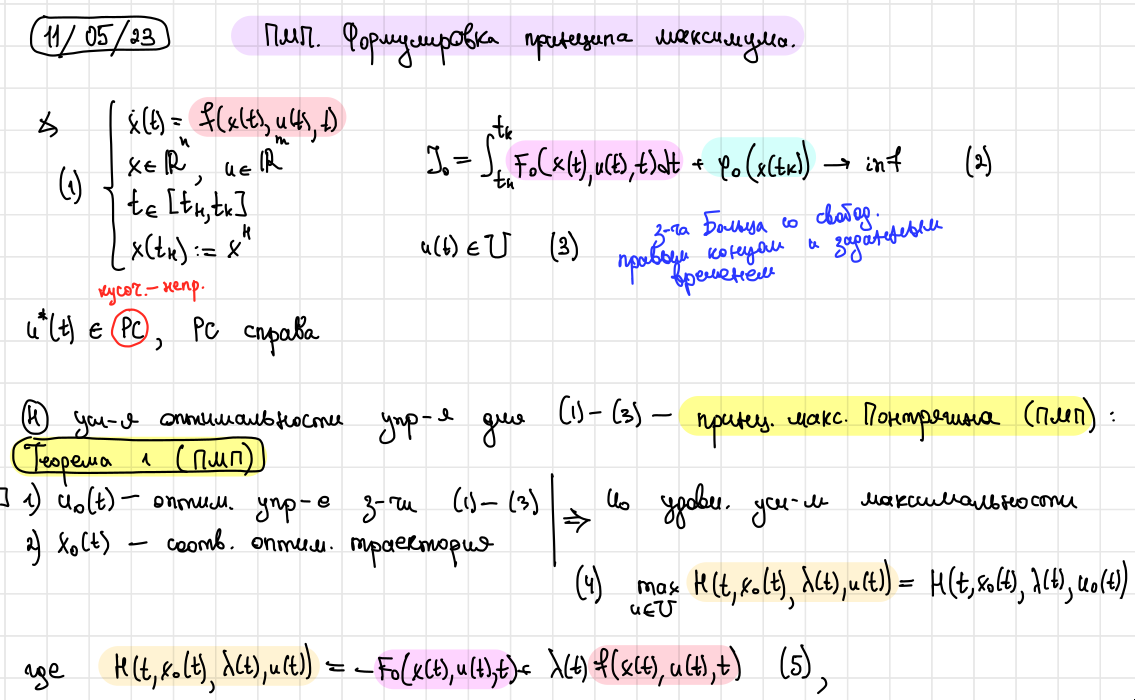 11/05/23 ПМП. Формулировка принципа максимума.
(1) { ẋ(t) = f(x(t), u(t), t)
x ∈ ℝⁿ, u ∈ ℝᵐ
t ∈ [tн, tк]
x(tн) := xᴴ
J₀ = ∫_{tн}^{tк} F₀(x(t), u(t), t)dt + φ₀(x(tк)) → inf (2)
u(t) ∈ U (3)
з-ча Больца со свобод.
правым концом и заданным
временем
кусоч.-непр.
u*(t) ∈ PC, PC справа
(H) усл-я оптимальности упр-я для (1)-(3) — принц. макс. Понтрягина (ПМП):
Теорема 1 (ПМП)
] 1) u₀(t) — оптим. упр-е з-чи (1)-(3)
2) x₀(t) — соотв. оптим. траектория
⇒ u₀ удовл. усл-ю максимальности
(4) max_{u∈U} H(t, x₀(t), λ(t), u(t)) = H(t, x₀(t), λ(t), u₀(t))
где H(t, x₀(t), λ(t), u(t)) = -F₀(x(t), u(t), t) + λ(t) f(x(t), u(t), t) (5),